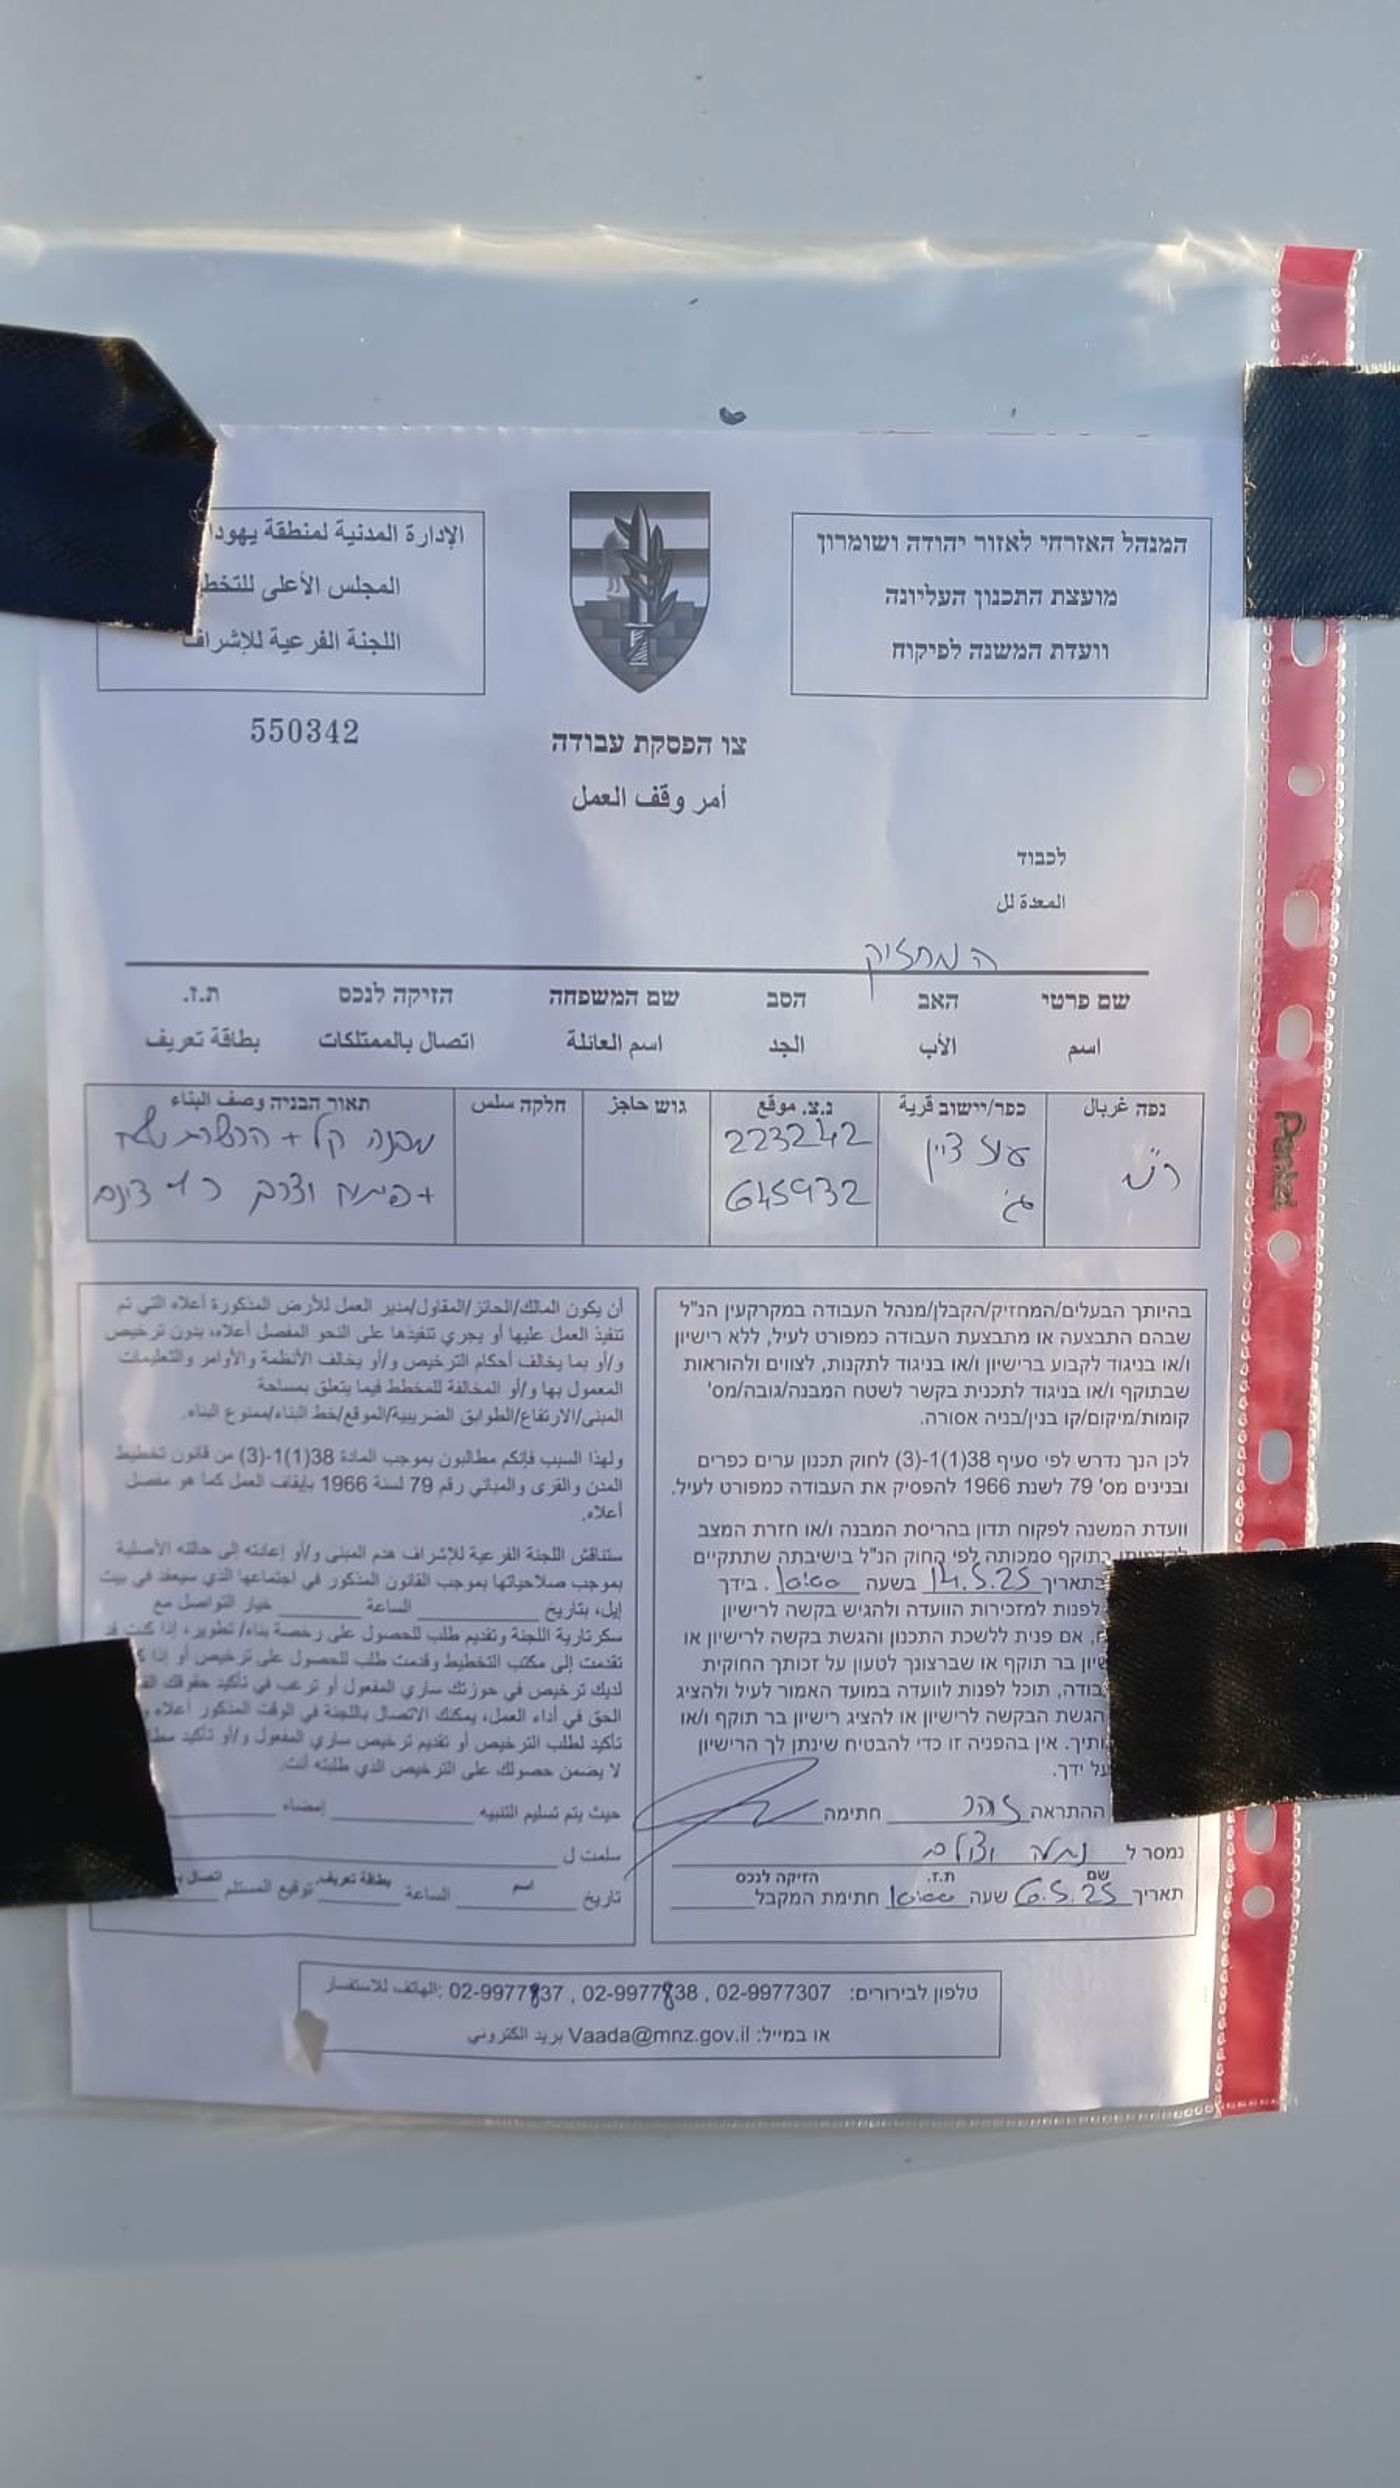 המנהל האזרחי לאזור יהודה ושומרון
מועצת התכנון העליונה
וועדת המשנה לפיקוח
الإدارة المدنية لمنطقة يهودا
المجلس الأعلى للتخط
اللجنة الفرعية للإشراف
550342
צו הפסקת עבודה
أمر وقف العمل
לכבוד
المعدة لل
המחזיק
שם פרטי האב הסב שם המשפחה הזיקה לנכס ת.ז.
اسم الأب الجد اسم العائلة اتصال بالممتلكات بطاقة تعريف
נפה غربال כפר/יישוב قرية נ.צ. موقع גוש حاجز חלקה سلس תאור הבניה وصف البناء
223242 מבנה קל + הכשרת שטח
645932
בהיותך הבעלים/המחזיק/הקבלן/מנהל העבודה במקרקעין הנ"ל
שבהם התבצעה או מתבצעת העבודה כמפורט לעיל, ללא רישיון
ו/או בניגוד לקבוע ברישיון ו/או בניגוד לתקנות, לצווים ולהוראות
שבתוקף ו/או בניגוד לתכנית בקשר לשטח המבנה/גובה/מס'
קומות/מיקום/קו בנין/בניה אסורה.
לכן הנך נדרש לפי סעיף 38(1)1-(3) לחוק תכנון ערים כפרים
ובנינים מס' 79 לשנת 1966 להפסיק את העבודה כמפורט לעיל.
וועדת המשנה לפקוח תדון בהריסת המבנה ו/או חזרת המצב
בתוקף סמכותה לפי החוק הנ"ל בישיבתה שתתקיים
בתאריך 14.5.25 בשעה 10:00. בידך
לפנות למזכירות הוועדה ולהגיש בקשה לרישיון
אם פנית ללשכת התכנון והגשת בקשה לרישיון או
שיון בר תוקף או שברצונך לטעון על זכותך החוקית
בודה, תוכל לפנות לוועדה במועד האמור לעיל ולהציג
הגשת הבקשה לרישיון או להציג רישיון בר תוקף ו/או
ותיך. אין בהפניה זו כדי להבטיח שינתן לך הרישיון
על ידך.
ההתראה זוהר חתימה
נמסר ל נתלה וצולם
שם ת.ז. הזיקה לנכס
תאריך 6.5.25 שעה 10:00 חתימת המקבל
أن يكون المالك/الحائز/المقاول/مدير العمل للأرض المذكورة أعلاه التي تم
تنفيذ العمل عليها أو يجري تنفيذها على النحو المفصل أعلاه، بدون ترخيص
و/أو بما يخالف أحكام الترخيص و/أو يخالف الأنظمة والأوامر والتعليمات
المعمول بها و/أو المخالفة للمخطط فيما يتعلق بمساحة
المبنى/الارتفاع/الطوابق الضريبية/الموقع/خط البناء/ممنوع البناء.
ولهذا السبب فإنكم مطالبون بموجب المادة 38(1)1-(3) من قانون تخطيط
المدن والقرى والمباني رقم 79 لسنة 1966 بإيقاف العمل كما هو مفصل
أعلاه.
ستناقش اللجنة الفرعية للإشراف هدم المبنى و/أو إعادته إلى حالته الأصلية
بموجب صلاحياتها بموجب القانون المذكور في اجتماعها الذي سيعقد في بيت
إيل، بتاريخ الساعة خيار التواصل مع
سكرتارية اللجنة وتقديم طلب للحصول على رخصة بناء/ تطوير، إذا كنت قد
تقدمت إلى مكتب التخطيط وقدمت طلب للحصول على ترخيص أو إذا ك
لديك ترخيص في حوزتك ساري المفعول أو ترغب في تأكيد حقوقك
الحق في أداء العمل، يمكنك الاتصال باللجنة في الوقت المذكور أعلاه و
تأكيد لطلب الترخيص أو تقديم ترخيص ساري المفعول و/أو تأكيد مطا
لا يضمن حصولك على الترخيص الذي طلبته أنت.
حيث يتم تسليم التنبيه إمضاء
سلمت ل
اسم بطاقة تعريف اتصال
تاريخ الساعة توقيع المستلم
טלפון לבירורים: 02-9977307 , 02-9977838 , 02-9977837 :الهاتف للاستفسار
או במייל: Vaada@mnz.gov.il بريد الكتروني